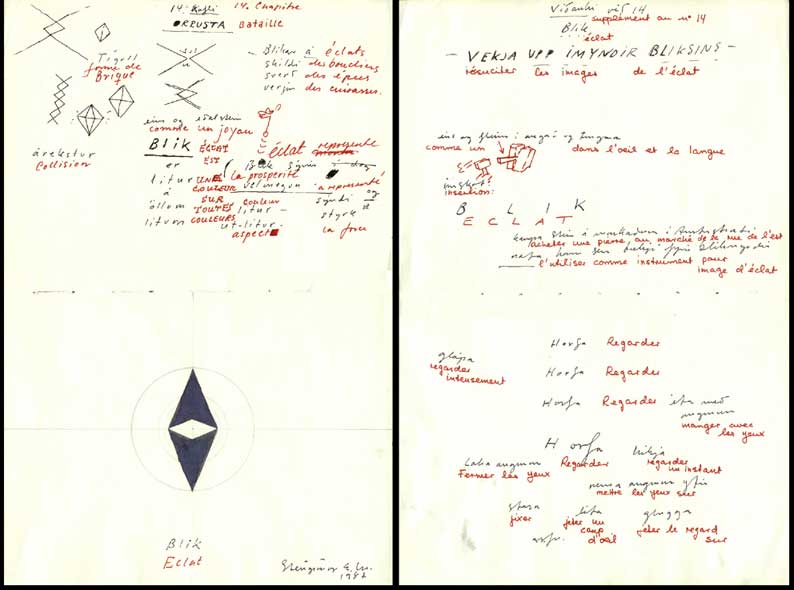 14. Kafli 14. Chapitre
ORRUSTA Bataille
Tígull
forme de
Brique
Blikar á éclats
skildi des boucliers
sverð des épées
des cuirasses.
árekstur
Collision
eins og
comme un joyau
BLIK ÉCLAT éclat représente
er EST
litur UNE la prosperité
á COULEUR velmegun a représenté
öllum SUR couleur og
litum TOUTES litur
COULEURS útlitur styrk
aspect la force
Blik
Eclat
1982
Viðauki við 14
supplément au nº 14
Blik
éclat
- VEKJA UPP ÍMYNDIR BLIKSINS -
résuciter les images de l'éclat
eins og í auga og tungu
comme un dans l'oeil et la langue
innskot:
insertion:
B L I K
E C L A T
kaupa
acheter une pierre, au marché de la rue de l'est
nota
l'utiliser comme instrument pour
image d'éclat
Horfa Regarder
glápa
regarder
intensement
Horfa Regarder
Horfa Regarder éta með
augunum
manger avec
les yeux
Horfa
Loka augunum Regarder kíkja
Fermer les yeux regarder
un instant
renna augunum yfir
mettre les yeux sur
stara líta glugga
fixer jeter un jeter le regard
coup sur
d'oeil